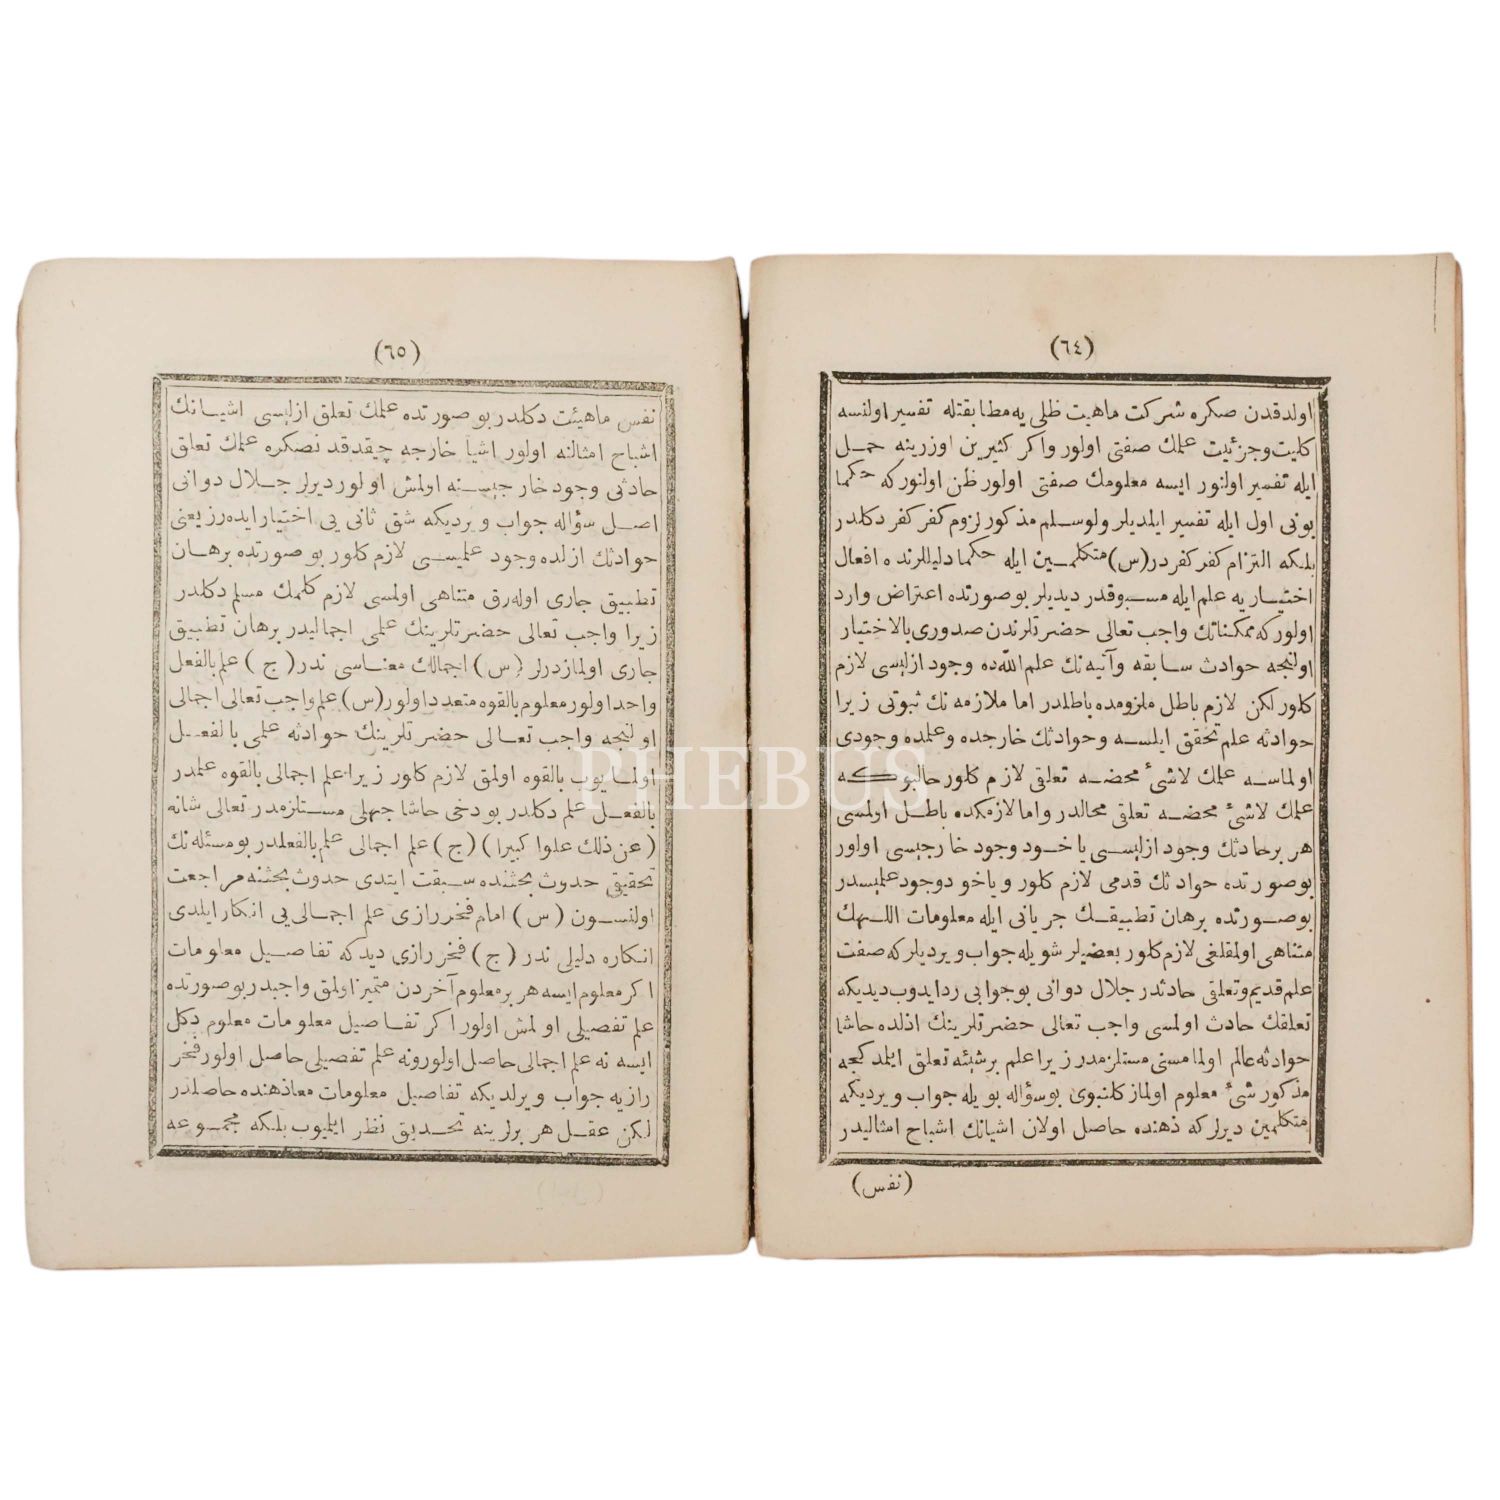 (٦٤)
اولدقدن صكره شركت ماهیت ظلی یه مطابقتله تفسیر اولنسه
كلیت وجزئیت علمك صفتی اولور واكر كثیرین اوزرینه حمل
ایله تفسیر اولنور ایسه معلومك صفتی اولور ظن اولنور كه حكما
بونی اول ایله تفسیر ایلدیلر ولوسلم مذكور لزوم كفر كفر دكلدر
بلكه التزام كفر كفر در (س) متكلمین ایله حكما دلیللرنده افعال
اختیاریه علم ایله مسبوقدر دیدیلر بو صورتده اعتراض وارد
اولور كه ممكناتك واجب تعالی حضرتلرندن صدوری بالاختیار
اولنجه حوادث سابقه وآتیه نك علم اللهده وجود ازلیسی لازم
كلور لكن لازم باطل ملزومده باطلدر اما ملازمه نك ثبوتی زیرا
حوادثه علم تحقق ایلسه وحوادثك خارجده وعلمده وجودی
اولماسه علمك لاشئ محضه تعلقی لازم كلور حالبوكه
علمك لاشئ محضه تعلقی محالدر واما لازمكده باطل اولمسی
هر برحادثك وجود ازلیسی یاخود وجود خارجیسی اولور
بو صورتده حوادثك قدمی لازم كلور ویاخود وجود علمیسدر
بو صورتده برهان تطبیقك جریانی ایله معلومات اللهك
متناهی اولمقلغی لازم كلور بعضیلر شویله جواب ویردیلر كه صفت
علم قدیم وتعلقی حادثدر جلال دوانی بو جوابی رد ایدوب دیدیكه
تعلقك حادث اولمسی واجب تعالی حضرتلرینك ازلده حاشا
حوادثه عالم اولمامسنی مستلزمدر زیرا علم برشیئه تعلق ایلمدكجه
مذكور شئ معلوم اولماز كلنبوی بو سؤاله بویله جواب ویردیكه
متكلمین دیرلر كه ذهنده حاصل اولان اشیانك اشباح امثالیدر
(نفس)
(٦٥)
نفس ماهیئت دكلدر بو صورتده علمك تعلق ازلیسی اشیانك
اشباح امثالنه اولور اشیا خارجه چیقدقدنصكره علمك تعلق
حادثی وجود خارجیسنه اولمش اولور دیرلر جلال دوانی
اصل سؤاله جواب ویردیكه شق ثانی یی اختیار ایده رز یعنی
حوادثك ازلده وجود علمیسی لازم كلور بو صورتده برهان
تطبیق جاری اوله رق متناهی اولمسی لازم كلمك مسلم دكلدر
زیرا واجب تعالی حضرتلرینك علمی اجمالیدر برهان تطبیق
جاری اولمازدرلر (س) اجمالك معناسی ندر (ج) علم بالفعل
واحد اولور معلوم بالقوه متعدد اولور (س) علم واجب تعالی اجمالی
اولنجه واجب تعالی حضرتلرینك حوادثه علمی بالفعل
اولمایوب بالقوه اولمق لازم كلور زیرا علم اجمالی بالقوه علمدر
بالفعل علم دكلدر بو دخی حاشا جهلی مستلزمدر تعالی شانه
(عن ذلك علوا كبیرا) (ج) علم اجمالی علم بالفعلدر بو مسئله نك
تحقیقی حدوث بحثنده سبقت ایتدی حدوث بحثنه مراجعت
اولنسون (س) امام فخر رازی علم اجمالی یی انكار ایلدی
انكاره دلیلی ندر (ج) فخر رازی دیدكه تفاصیل معلومات
اكر معلوم ایسه هر بر معلوم آخردن متمیز اولمق واجبدر بو صورتده
علم تفصیلی اولمش اولور اكر تفاصیل معلومات معلوم دكل
ایسه نه علم اجمالی حاصل اولور ونه علم تفصیلی حاصل اولور فخر
رازیه جواب ویرلدیكه تفاصیل معلومات معا ذهنده حاصلدر
لكن عقل هر برلرینه تحدیق نظر ایلمیوب بلكه مجموعه
PHEBUS